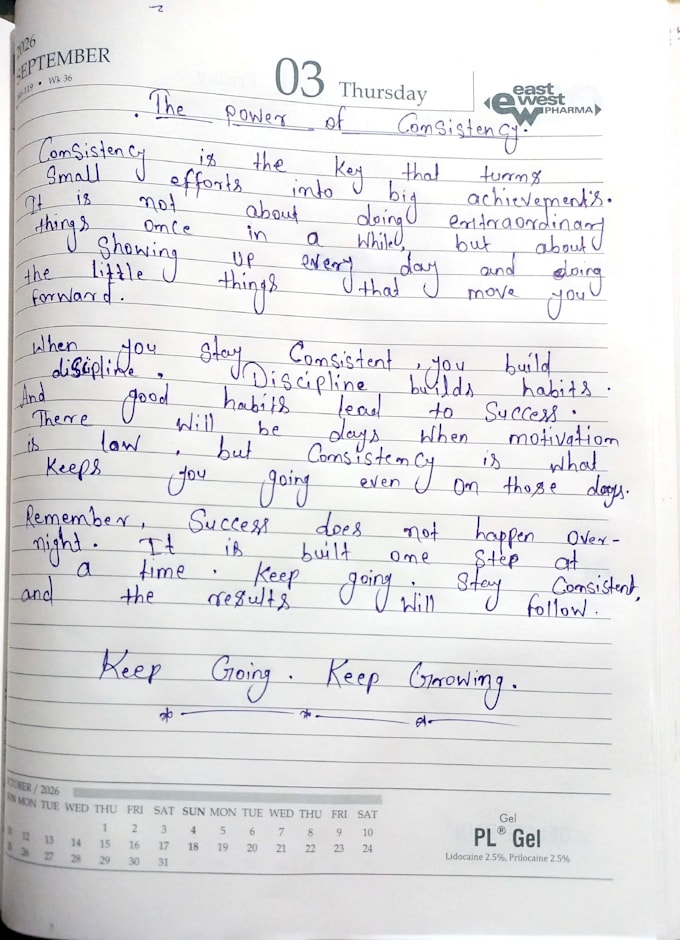 2026
SEPTEMBER
Wk 36
03 Thursday
east
west
PHARMA
The power of Consistency.
Consistency is the key that turns
Small efforts into big achievements.
It is not about doing extraordinary
things once in a while, but about
Showing up every day and doing
the little things that move you
forward.
When you stay Consistent, you build
discipline. Discipline builds habits.
And good habits lead to Success.
There will be days when motivation
is low, but Consistency is what
Keeps you going even on those days.
Remember, Success does not happen over-
night. It is built one step at
a time. Keep going. Stay Consistent,
and the results will follow.
Keep Going. Keep Growing.
/ 2026
MON TUE WED THU FRI SAT SUN MON TUE WED THU FRI SAT
1 2 3 4 5 6 7 8 9 10
12 13 14 15 16 17 18 19 20 21 22 23 24
26 27 28 29 30 31
Gel
PL® Gel
Lidocaine 2.5%, Prilocaine 2.5%